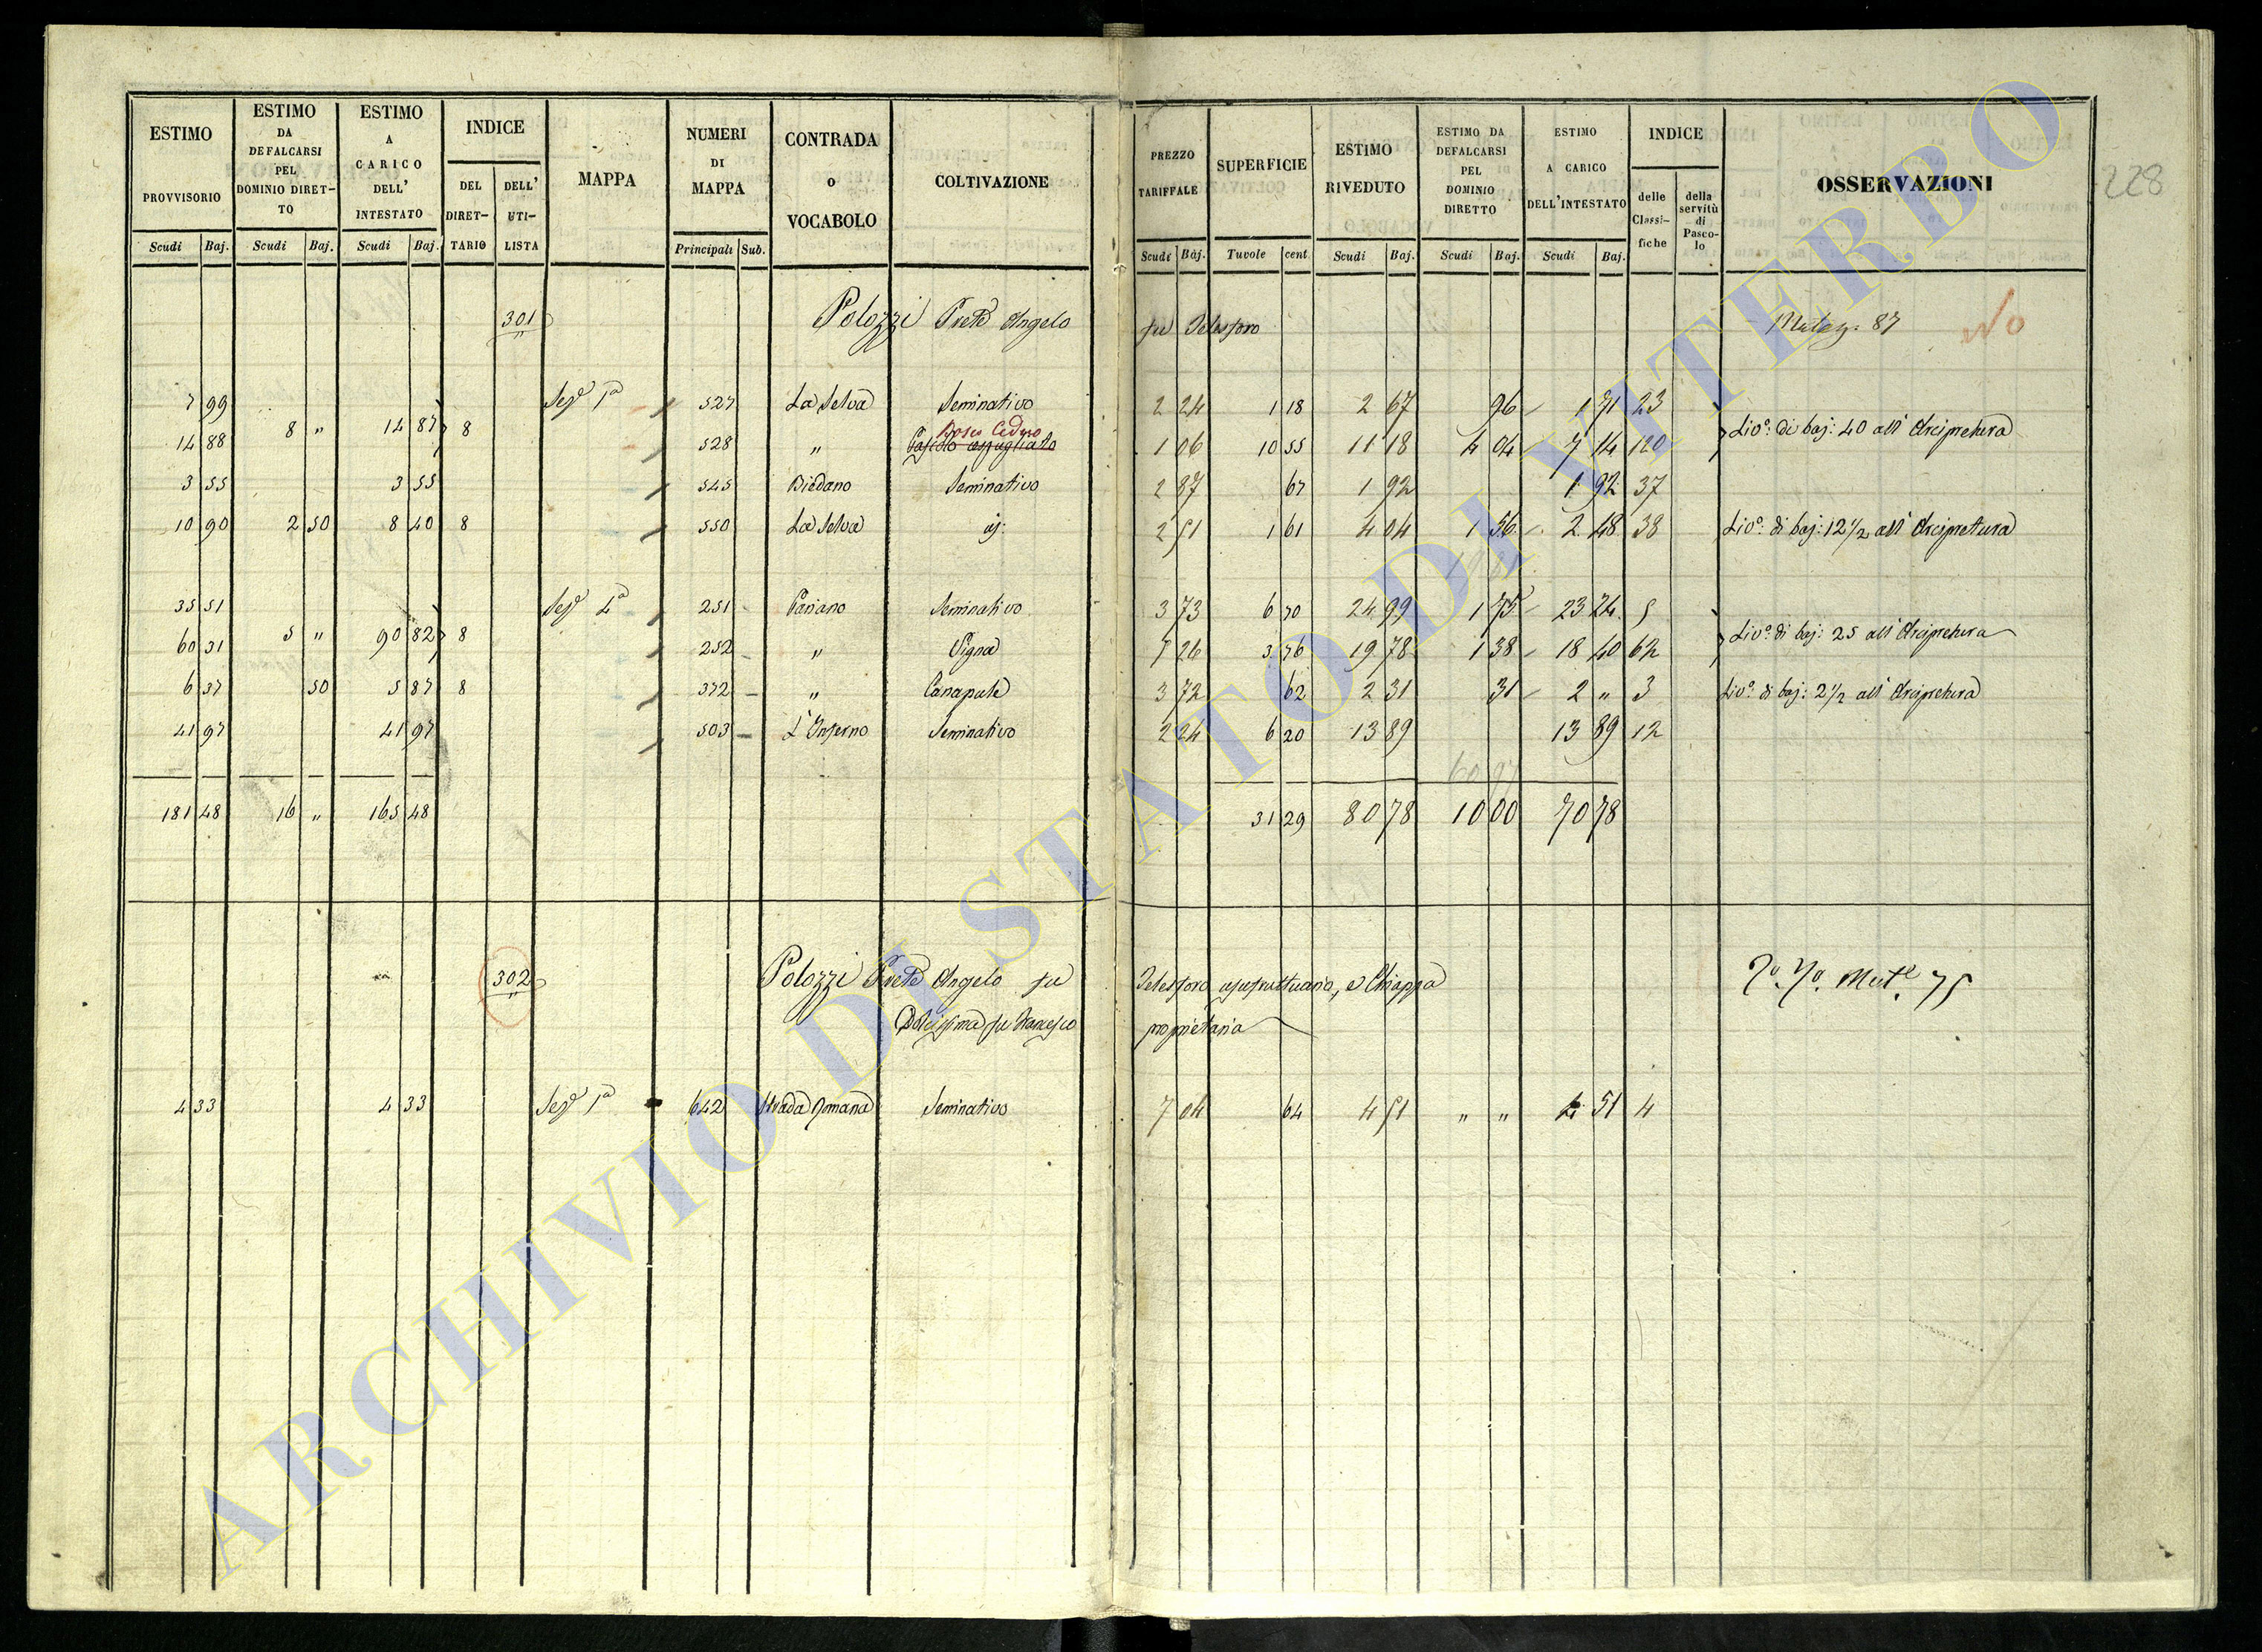 ESTIMO PROVVISORIO Scudi Baj.
ESTIMO DA DEFALCARSI PEL DOMINIO DIRET- TO Scudi Baj.
ESTIMO A CARICO DELL' INTESTATO Scudi Baj.
INDICE DEL DIRET- TARIO DELL' UTI- LISTA
MAPPA
NUMERI DI MAPPA Principali Sub.
CONTRADA O VOCABOLO
COLTIVAZIONE
PREZZO TARIFFALE Scudi Baj.
SUPERFICIE Tuvole cent
ESTIMO RIVEDUTO Scudi Baj.
ESTIMO DA DEFALCARSI PEL DOMINIO DIRETTO Scudi Baj.
ESTIMO A CARICO DELL'INTESTATO Scudi Baj.
INDICE delle Classi- fiche della servitù di Pasco- lo
OSSERVAZIONI
228
301 Polozzi Prete Angelo fu Telesforo 87 No
7 99 Sez.e 1a 527 La Selva Seminativo 2 24 1 18 2 67 96 1 71 23
8 " 14 87 8 Livo: di baj: 40 all' Arcipretura
Bosco Ceduo
14 88 528 " Pascolo cespugliato 1 06 10 55 11 18 4 04 7 14 120
3 55 3 55 545 Biedano Seminativo 2 87 67 1 92 1 92 37
10 90 2 50 8 40 8 550 La Selva id: 2 51 1 61 4 04 1 56 2 48 38 Livo: di baj: 12 1/2 all' Arcipretura
35 51 Sez.e 2a 251 Pariano Seminativo 3 73 6 70 24 99 1 75 23 24 5
5 " 90 82 8 Livo: di baj: 25 all' Arcipretura
60 31 252 " Vigna 5 26 3 76 19 78 1 38 18 40 62
6 37 50 5 87 8 372 " Canapule 3 72 62 2 31 31 2 " 3 Livo: di baj: 2 1/2 all' Arcipretura
41 97 41 97 503 L'Inferno Seminativo 2 24 6 20 13 89 13 89 12
181 48 16 " 165 48 31 29 80 78 10 00 70 78
302 Polozzi Prete Angelo fu Telesforo usufruttuario, e Chiappa 75
Dolcissima fu Francesco proprietaria
4 33 4 33 Sez.e 1a 642 Strada Romana Seminativo 7 04 64 4 51 " " 4 51 4
ARCHIVIO DI STATO DI VITERBO